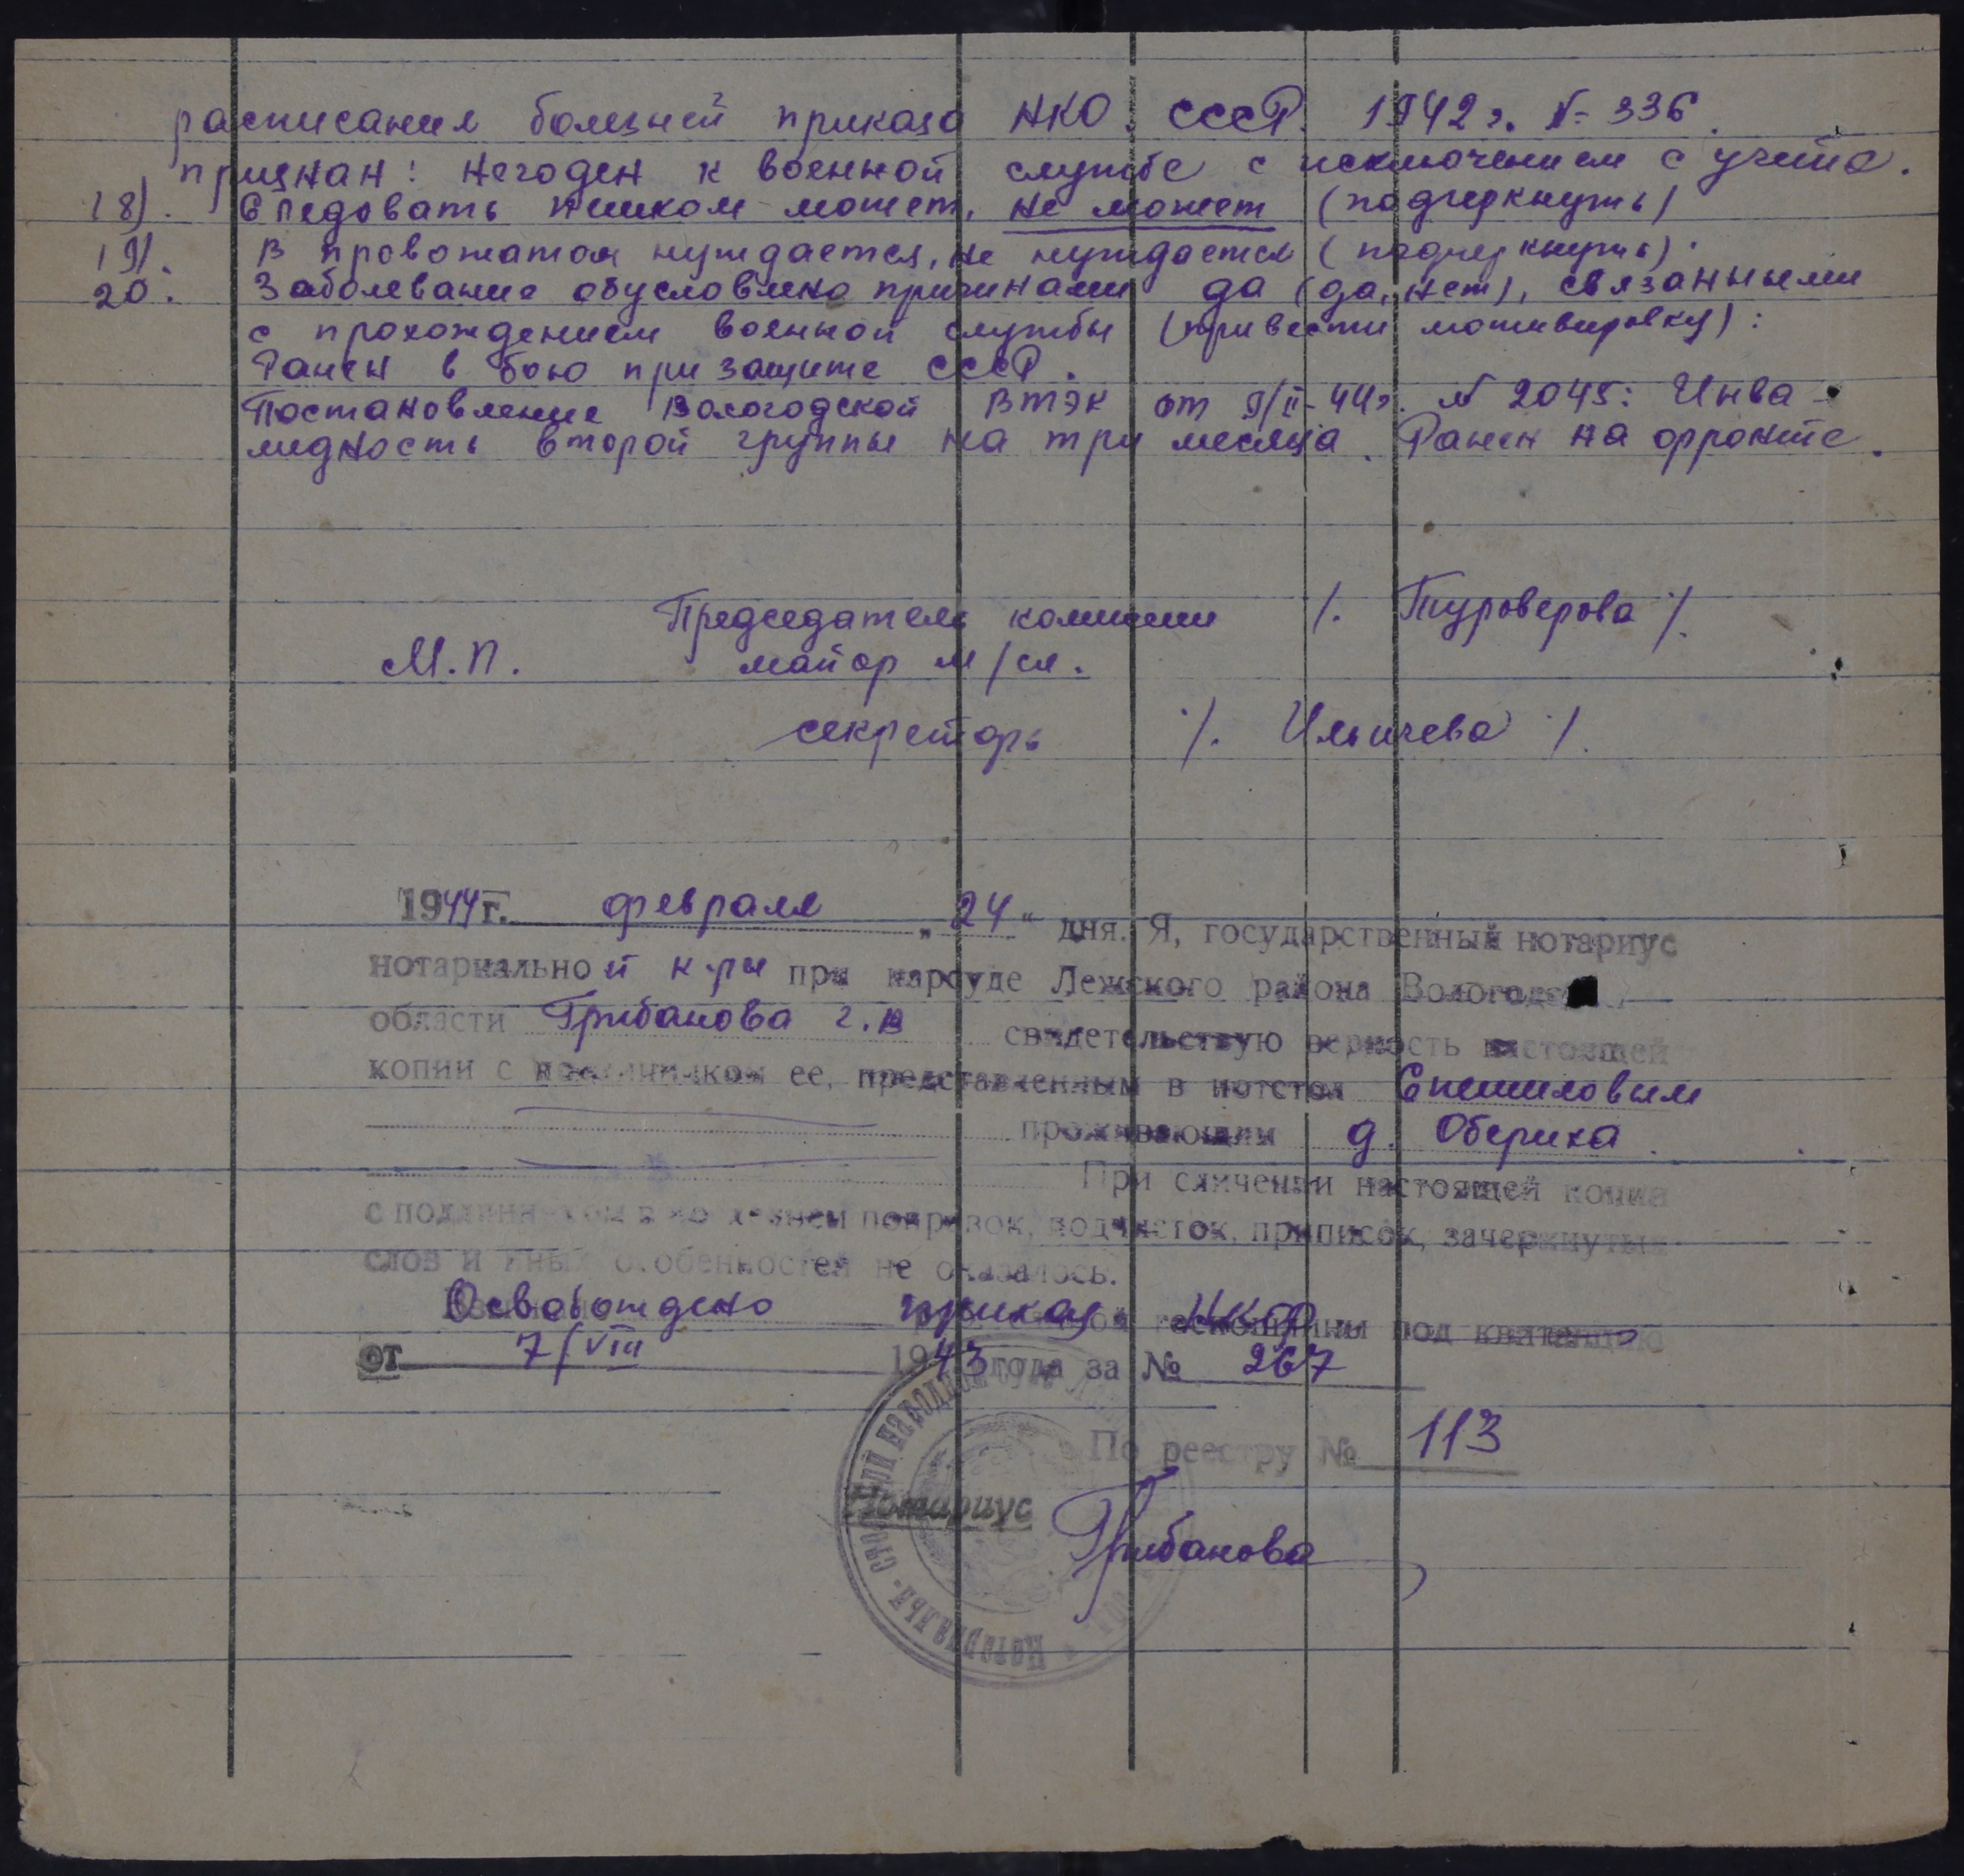 расписания болезней приказа НКО. СССР. 1942 г. № 336.
признан: негоден к военной службе с исключением с учета.
18). Следовать пешком может, не может (подчеркнуть)
19). В провожатом нуждается, не нуждается (подчеркнуть).
20. Заболевание обусловлено причинами да (да, нет), связанными
с прохождением военной службы (привести мотивировку):
Ранен в бою при защите СССР.
Постановление Вологодской ВТЭК от 9/II-44г. № 2045: Инва-
лидность второй группы на три месяца. Ранен на фронте.
Председатель комиссии /. Туроверова /.
М.П. майор м/сл.
секретарь /. Ильичева /.
1944 г. февраля „24“ дня. Я, государственный нотариус
нотариальной к-ры при нарсуде Лежского района Вологодс
области Грибанова Г.В свидетельствую верность настоящей
копии с подлинником ее, представленным в нотстол Спешиловым
проживающим д. Обериха.
При сличении настоящей копии
с подлинником в помарок, подчисток, приписок, зачеркнутых
слов и иных особенностей не оказалось.
Освобождено приказ НКФ под квитанцию
от 7/VIII 1943 года за № 267
По реестру № 113
Нотариус Грибанова